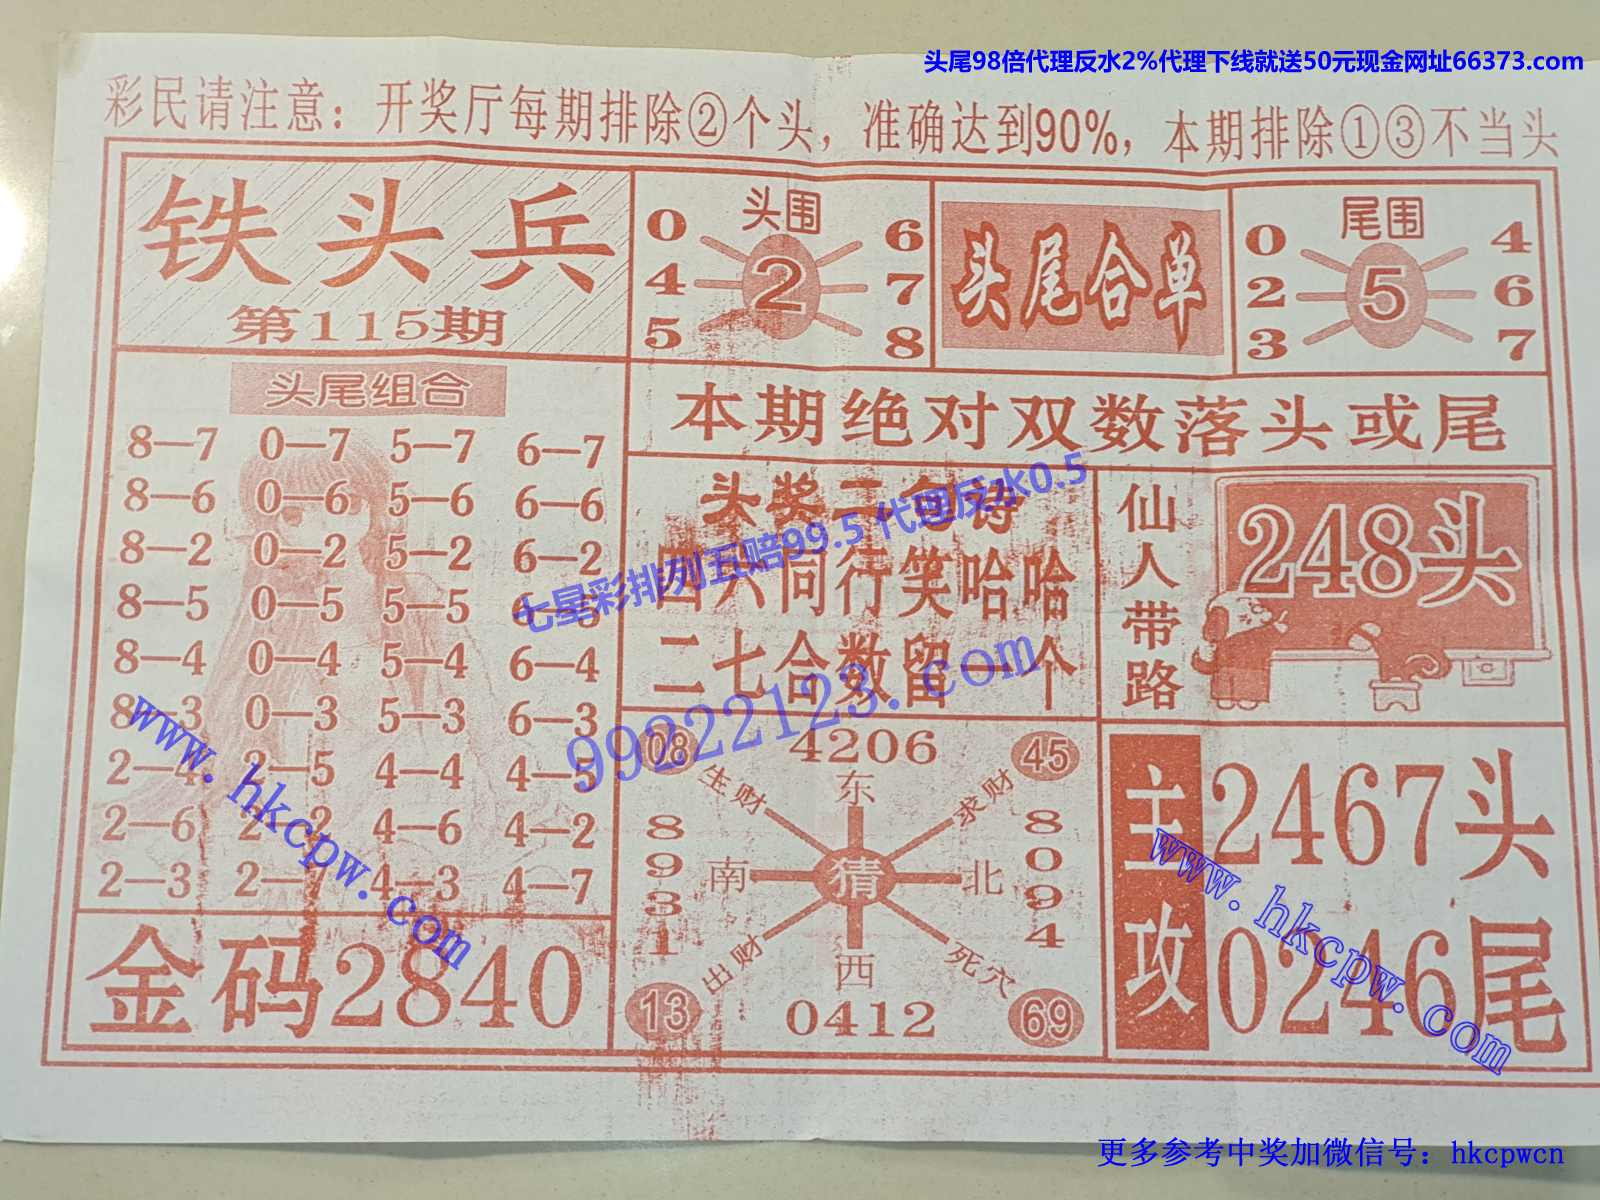 头尾98倍代理反水2%代理下线就送50元现金网址66373.com
彩民请注意：开奖厅每期排除②个头，准确达到90%，本期排除①③不当头
铁头兵
第115期
头围
0 6
4 2 7
5 8
头尾合单
尾围
0 4
2 5 6
3 7
头尾组合
8—7 0—7 5—7 6—7
8—6 0—6 5—6 6—6
8—2 0—2 5—2 6—2
8—5 0—5 5—5 6—5
8—4 0—4 5—4 6—4
8—3 0—3 5—3 6—3
2—4 2—5 4—4 4—5
2—6 2—2 4—6 4—2
2—3 2—7 4—3 4—7
金码2840
本期绝对双数落头或尾
头奖二句诗
四六同行笑哈哈
二七合数留一个
仙人带路
248头
08 4206 45
生财 东 求财
8931 南 猜 北 8094
出财 西 死穴
13 0412 69
主攻
2467头
0246尾
七星彩排列五赔99.5 代理反水0.5
99222123.com
www.hkcpw.com
www.hkcpw.com
更多参考中奖加微信号：hkcpwcn